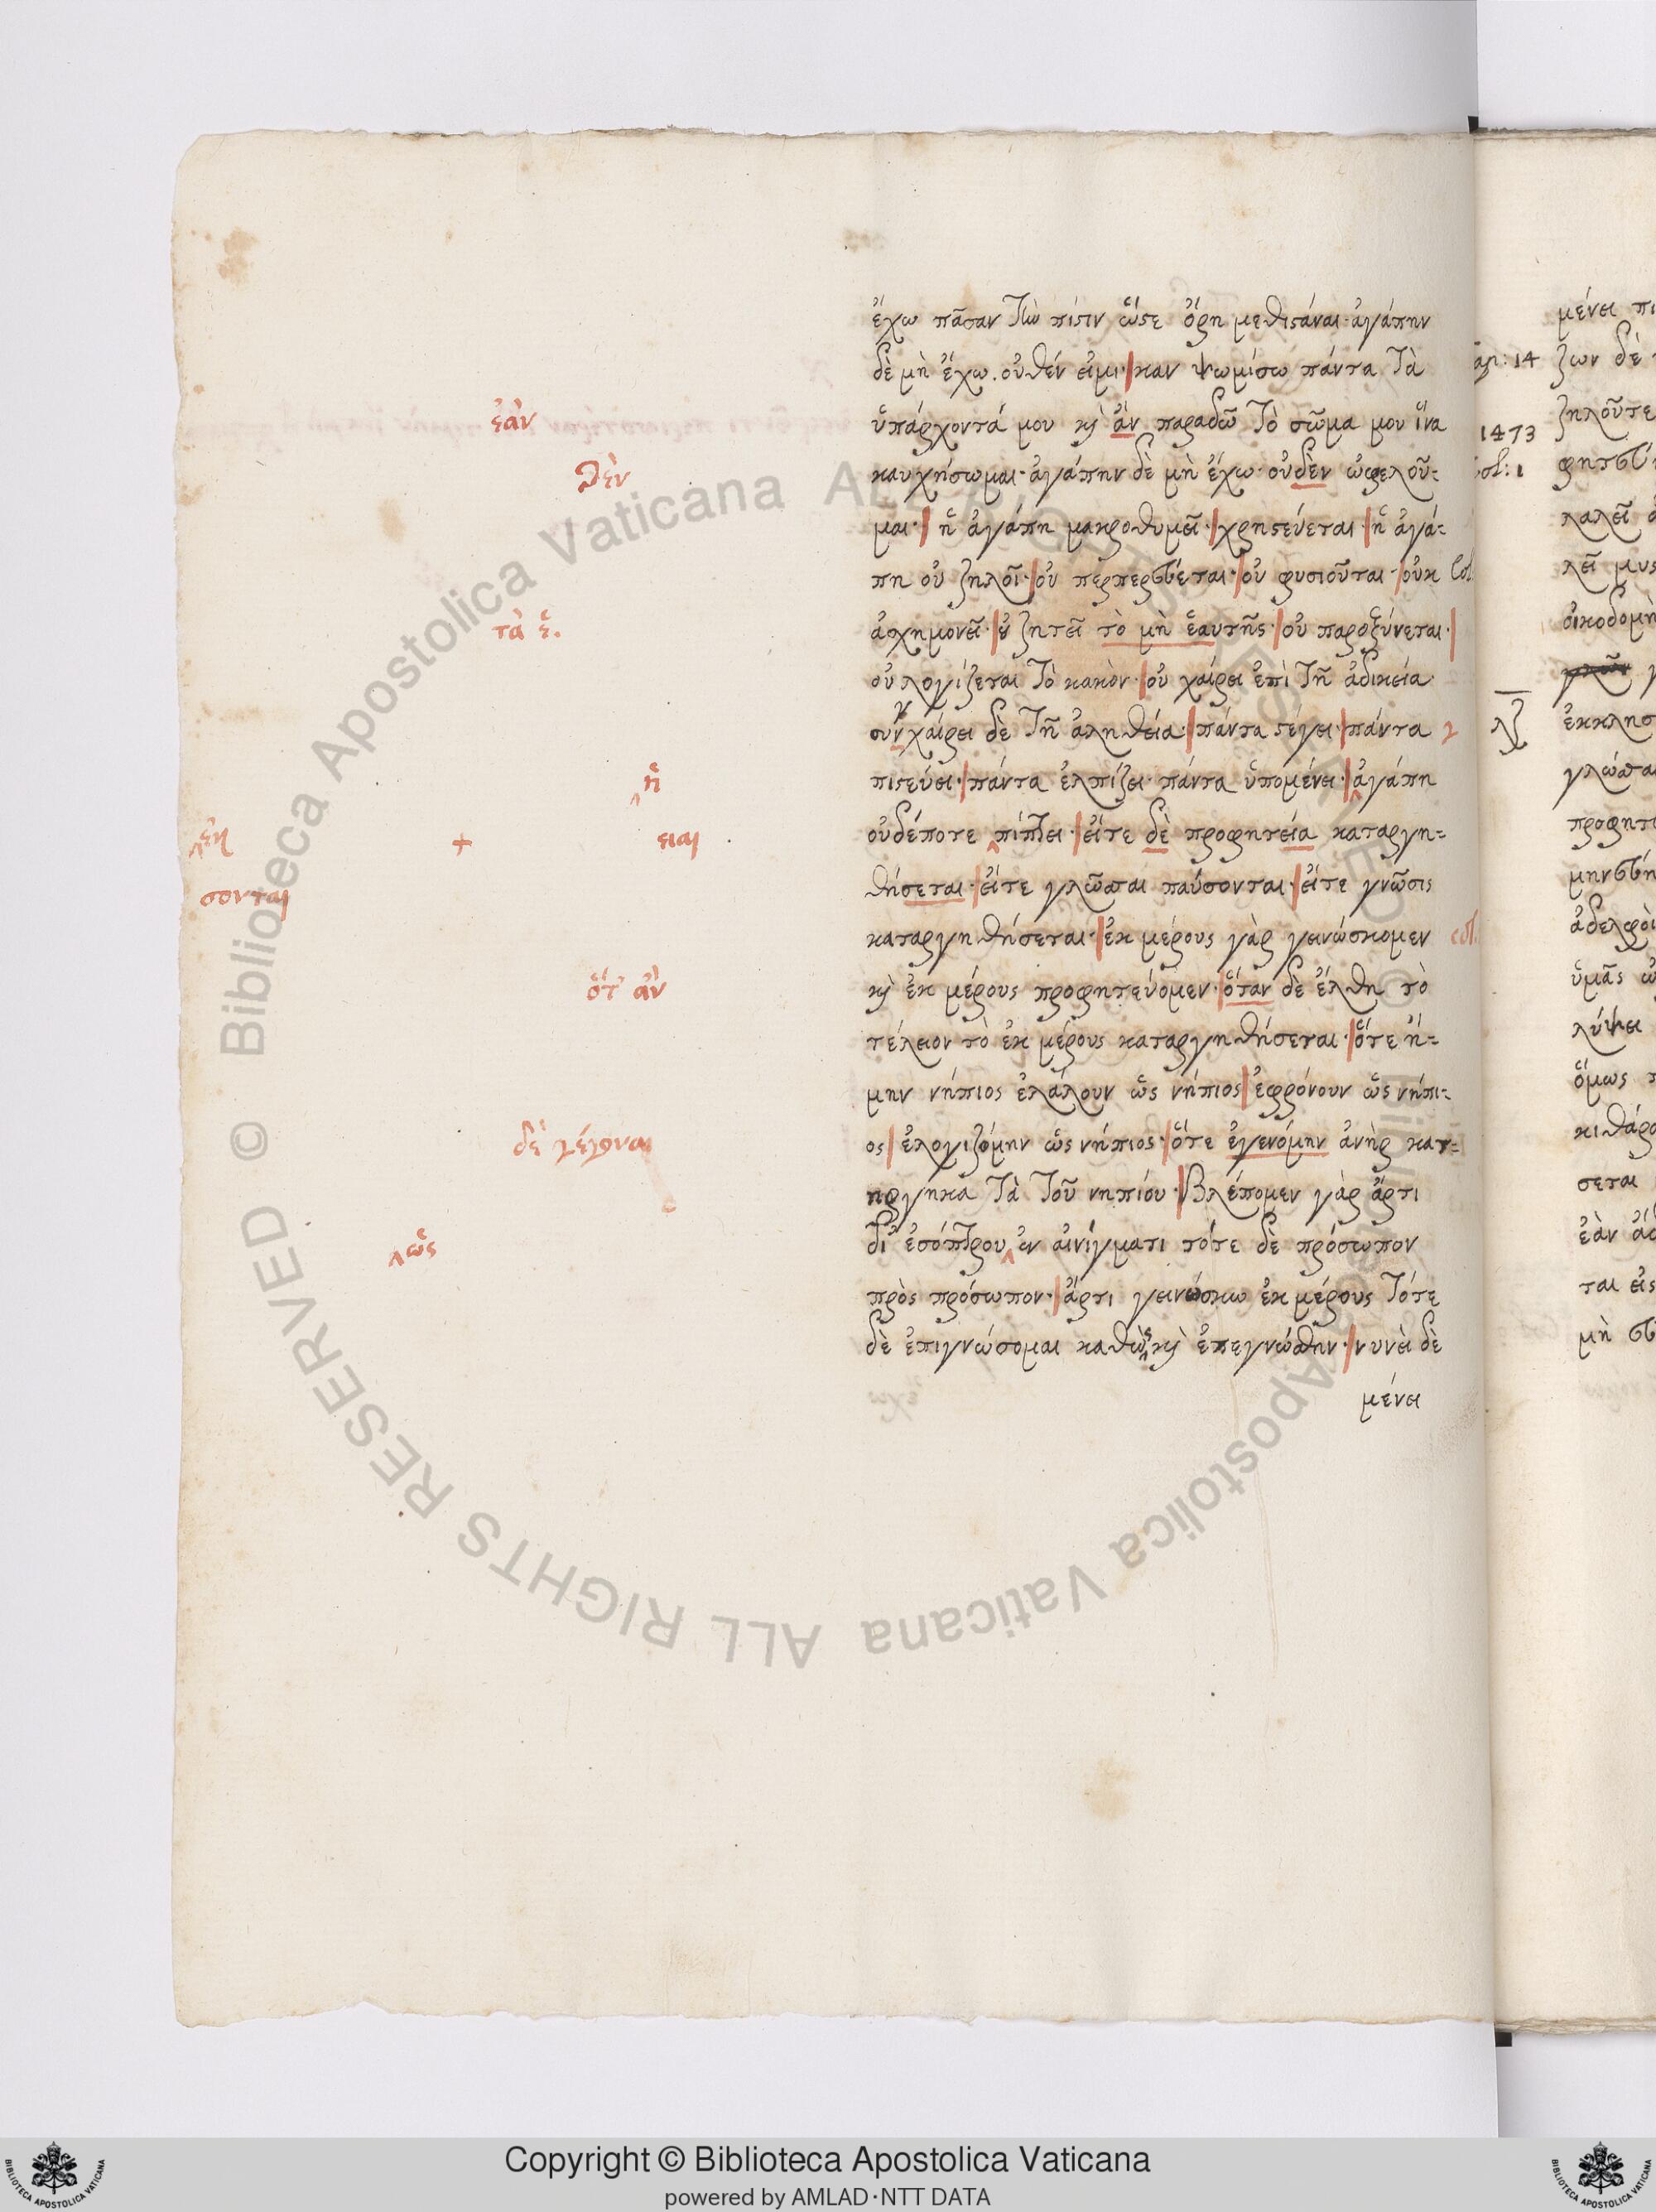 ἔχω πᾶσαν τὴν πίστιν ὥστε ὄρη μεθιστάναι· ἀγάπην
δὲ μὴ ἔχω. οὐθέν εἰμι· καν ψωμίσω πάντα τὰ
ἐὰν
ὑπάρχοντά μου κὶ ἂν παραδῶ τὸ σῶμα μου ἵνα
θὲν
καυχήσωμαι· ἀγάπην δὲ μὴ ἔχω· οὐδὲν ὠφελοῦ-
μαι· ἡ ἀγάπη μακροθυμεῖ· χρηστεύεται· ἡ ἀγά-
πη οὐ ζηλοῖ· οὐ περπερεύεται· οὐ φυσιοῦται· οὐκ col.
τὰ ἑ.
ἀσχημονεῖ· οὐ ζητεῖ τὸ μὴ ἑαυτῆς· οὐ παροξύνεται·
οὐ λογίζεται τὸ κακὸν· οὐ χαίρει ἐπὶ τῇ ἀδικεία·
συνχαίρει δὲ τῇ ἀληθεία· πάντα στέγει· πάντα 2
ἡ
πιστεύει· πάντα ἐλπίζει· πάντα ὑπομένει· ἀγάπη
ἐκ + ειαι
οὐδέποτε πίπτει· εἴτε δὲ προφητεία καταργη-
σονται
θήσεται· εἴτε γλῶσσαι παύσονται· εἴτε γνῶσις
καταργηθήσεται· ἐκ μέρους γὰρ γεινώσκομεν col.
ὅτ' ἂν
κὶ ἐκ μέρους προφητεύομεν· ὅταν δὲ ἔλθη τὸ
τέλειον τὸ ἐκ μέρους καταργηθήσεται· ὅτε ἤ-
μην νήπιος ἐλάλουν ὡς νήπιος ἐφρόνουν ὡς νήπι-
δὲ γέγονα
ος ἐλογιζόμην ὡς νήπιος· ὅτε ἐγενόμην ἀνὴρ κατ-
ηργηκα τὰ τοῦ νηπίου· Βλέπομεν γὰρ ἄρτι
ὡς
δι' ἐσόπτρου ἐν αἰνίγματι τότε δὲ πρόσωπον
πρὸς πρόσωπον· ἄρτι γεινώσκω ἐκ μέρους τότε
δὲ ἐπιγνώσομαι καθὼς κὶ ἐπεγνώσθην· νυνεὶ δὲ
μένει
14
1473
col: 1
μένει
ζων δὲ
ζηλοῦτε
λαλεῖ
οἰκοδομὴ
προφητ
ἀδελφοὶ
ὑμᾶς
ὅμως
κιθάρ
σεται
ἐὰν
ται εἰς
μὴ
Biblioteca Apostolica Vaticana ALL RIGHTS RESERVED ©
Copyright © Biblioteca Apostolica Vaticana
powered by AMLAD·NTT DATA
BIBLIOTECA APOSTOLICA VATICANA
BIBLIOTECA APOSTOLICA VATICANA